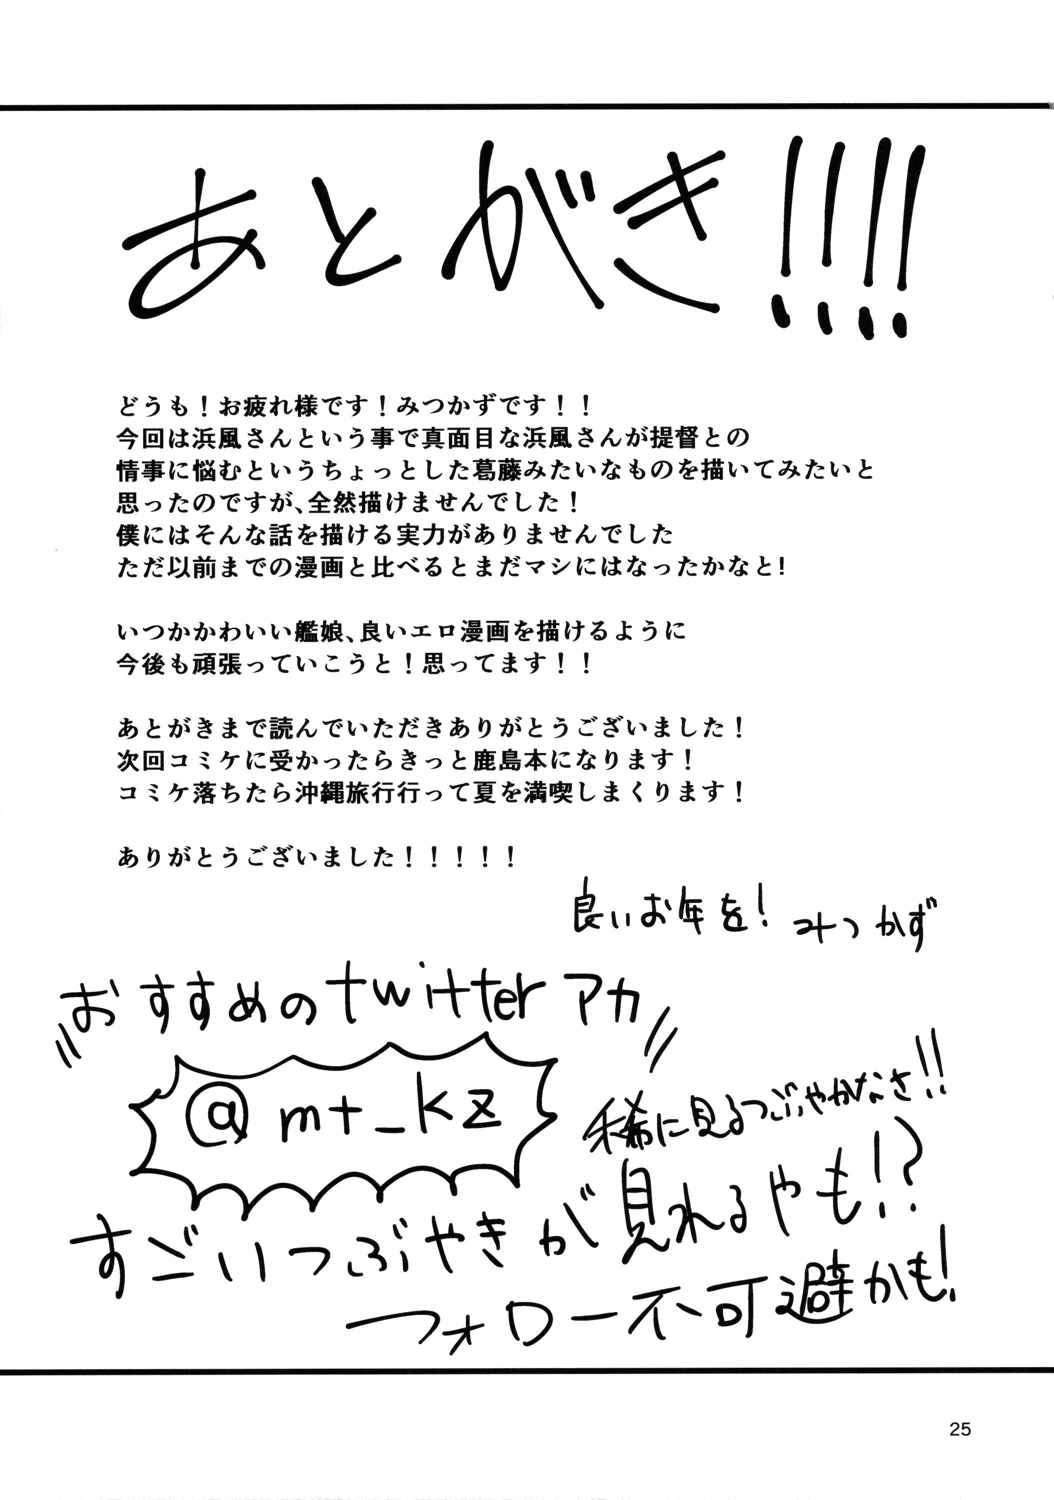 あとがき!!!!
どうも！お疲れ様です！みつかずです！！
今回は浜風さんという事で真面目な浜風さんが提督との
情事に悩むというちょっとした葛藤みたいなものを描いてみたいと
思ったのですが、全然描けませんでした！
僕にはそんな話を描ける実力がありませんでした
ただ以前までの漫画と比べるとまだマシにはなったかなと！
いつかかわいい艦娘、良いエロ漫画を描けるように
今後も頑張っていこうと！思ってます！！
あとがきまで読んでいただきありがとうございました！
次回コミケに受かったらきっと鹿島本になります！
コミケ落ちたら沖縄旅行行って夏を満喫しまくります！
ありがとうございました！！！！！
良いお年を! みつかず
おすすめのtwitterアカ
@mt_kz
稀に見るつぶやかなさ!!
すごいつぶやきが見れるやも!?
フォロー不可避かも!
25